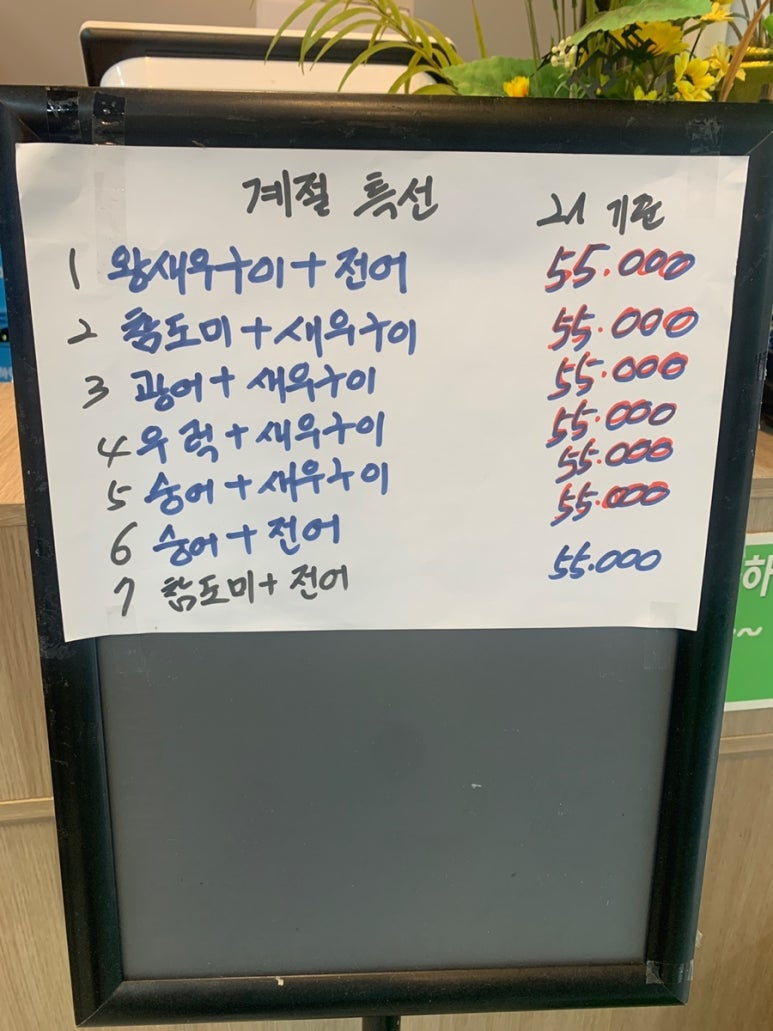 계절 특선 2人 기준
1 왕새우구이 + 전어 55.000
2 참도미 + 새우구이 55.000
3 광어 + 새우구이 55.000
4 우럭 + 새우구이 55.000
5 숭어 + 새우구이 55.000
6 숭어 + 전어 55.000
7 참도미 + 전어 55.000
하
~